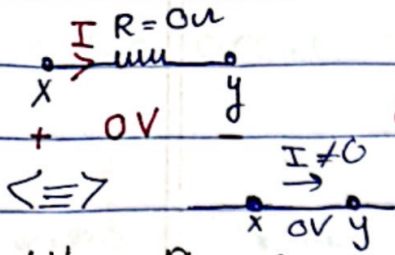 I R=0Ω
x y
+ 0V -
<≡> I≠0
x 0V y